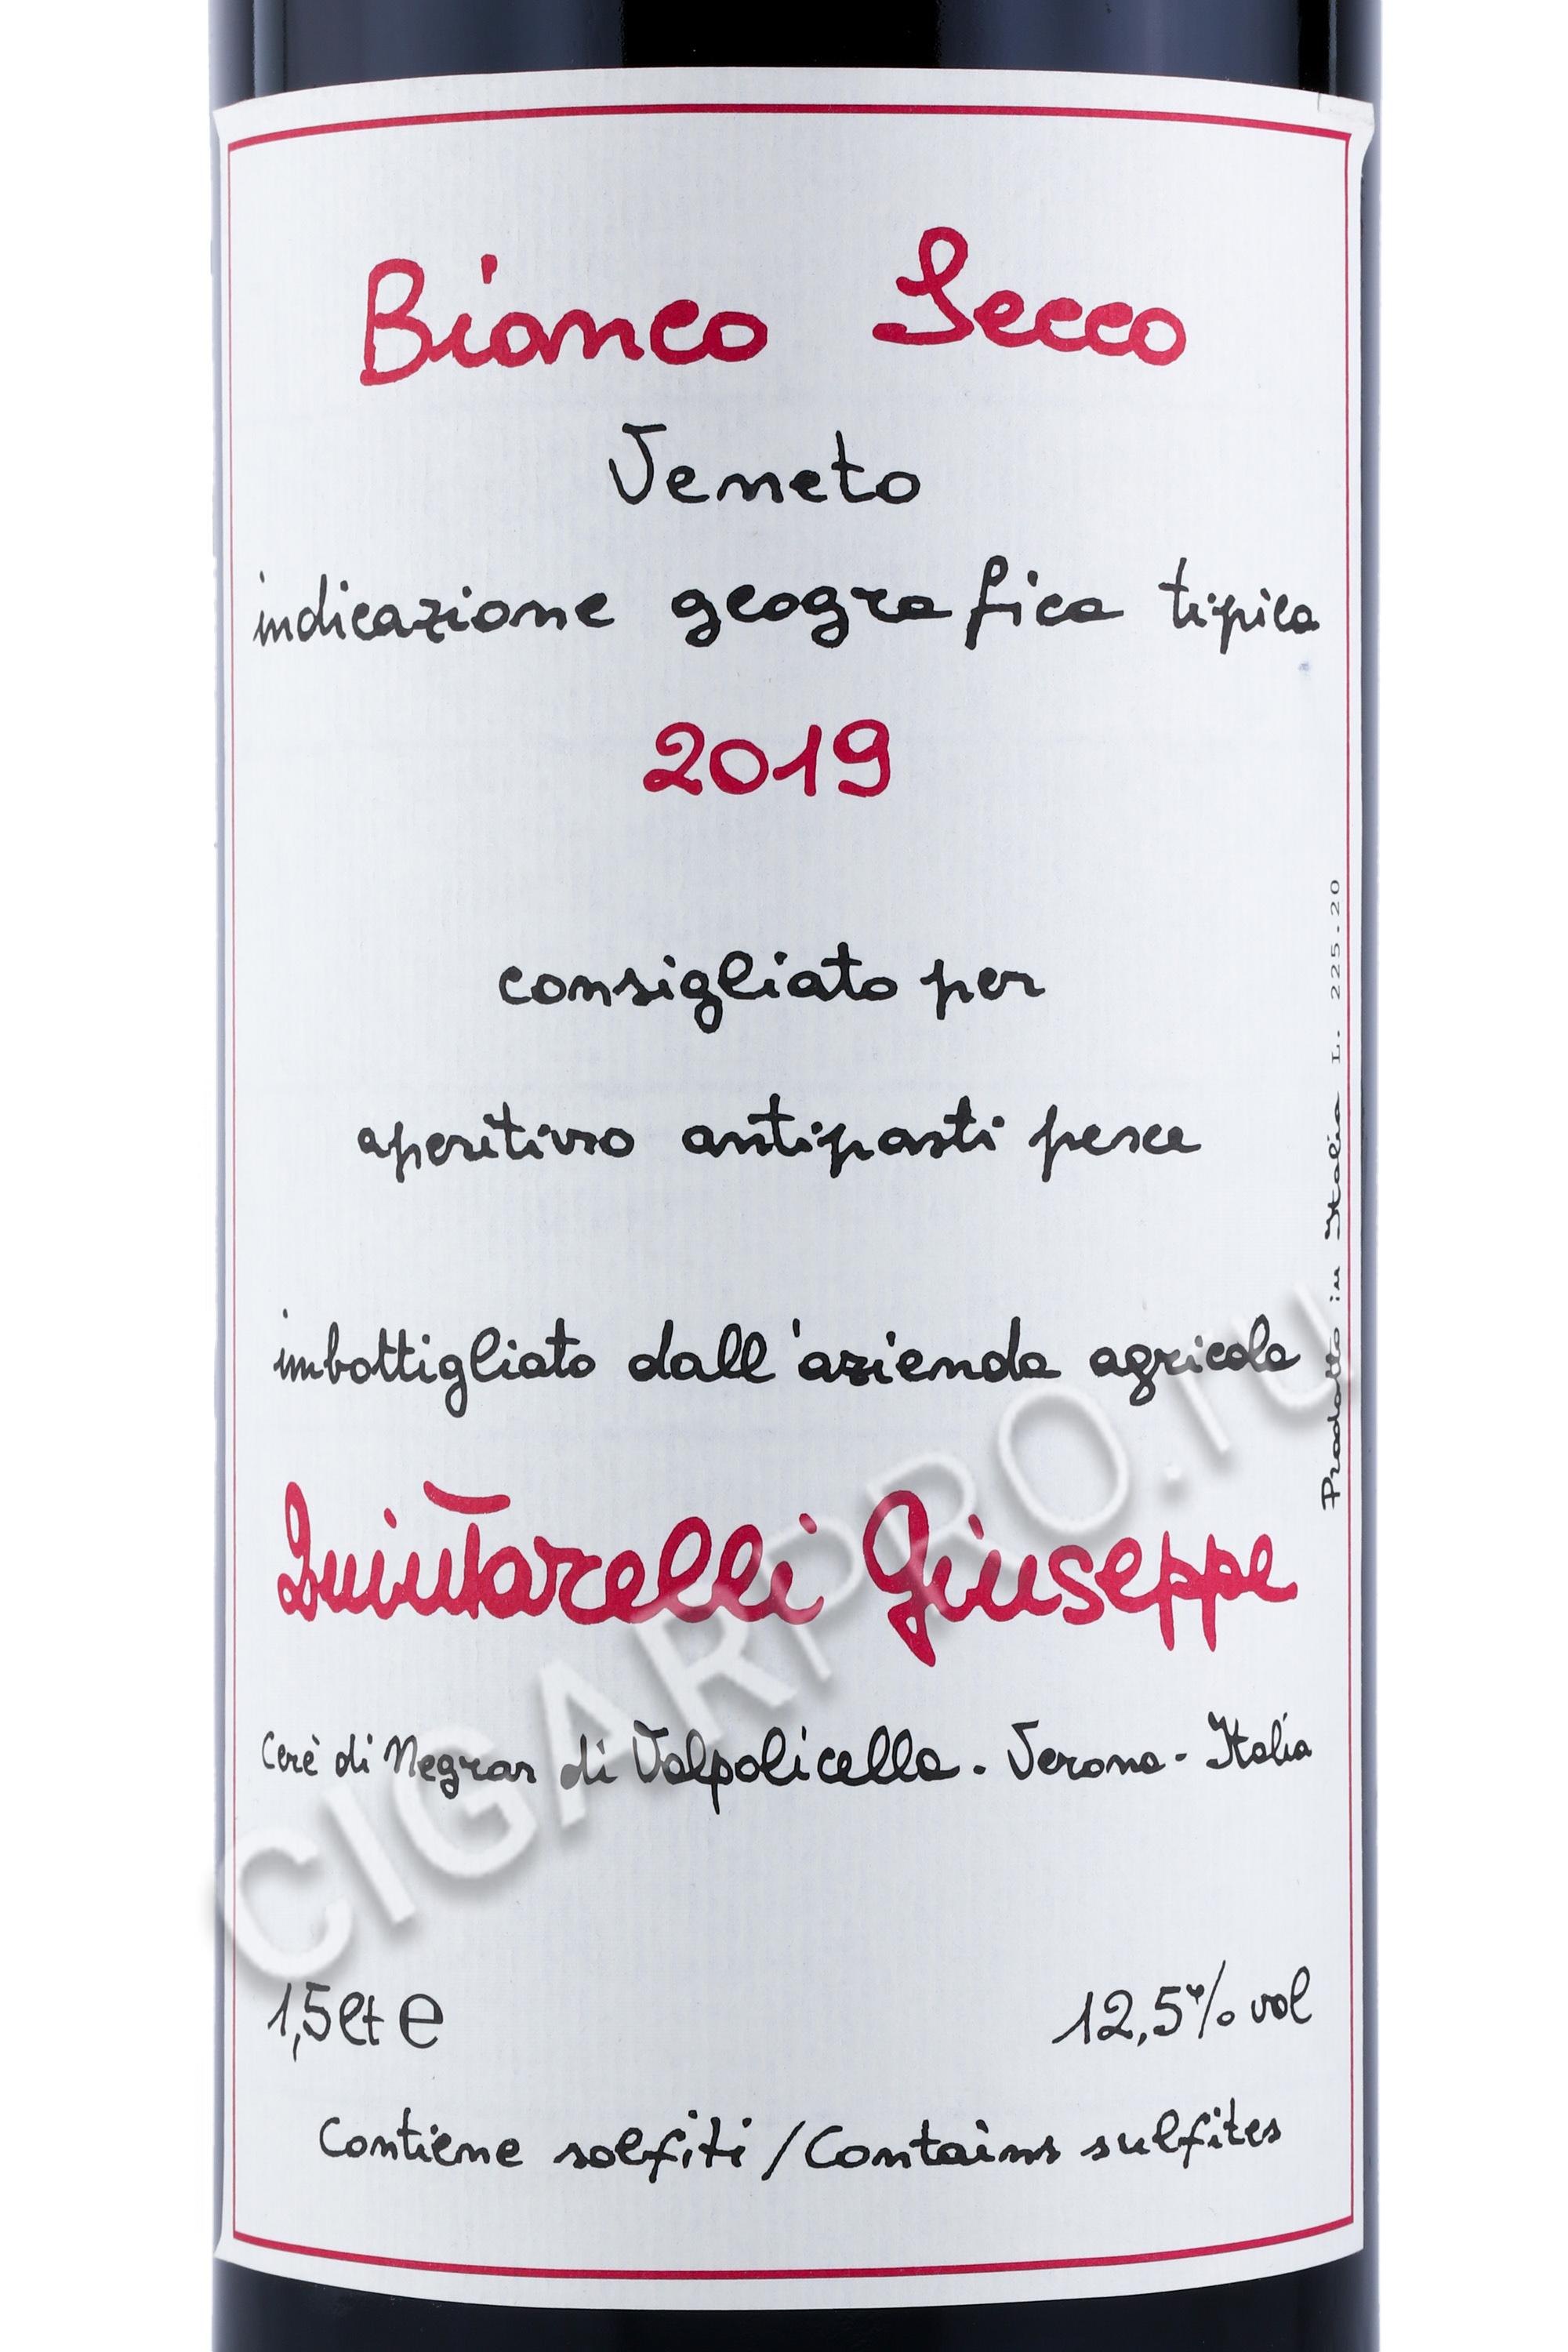 Bianco Secco
Veneto
indicazione geografica tipica
2019
consigliato per
aperitivo antipasti pesce
imbottigliato dall'azienda agricola
Quintarelli Giuseppe
Cerè di Negrar di Valpolicella - Verona - Italia
1,5 lt e
12,5% vol
Contiene solfiti / Contains sulfites
Prodotto in Italia L. 225.20
CIGARPRO.ru